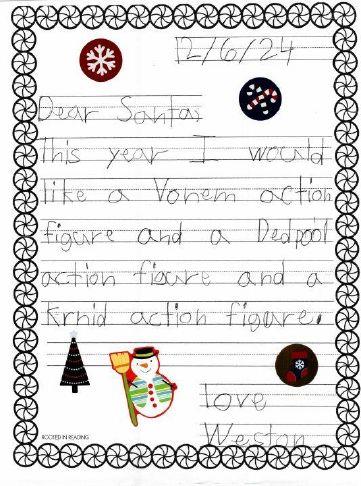 12/6/24
Dear Santa,
This year I would
like a Vonem action
figure and a Dedpool
action figure and a
Krnid action figure.
love
Weston
ROOTED IN READING